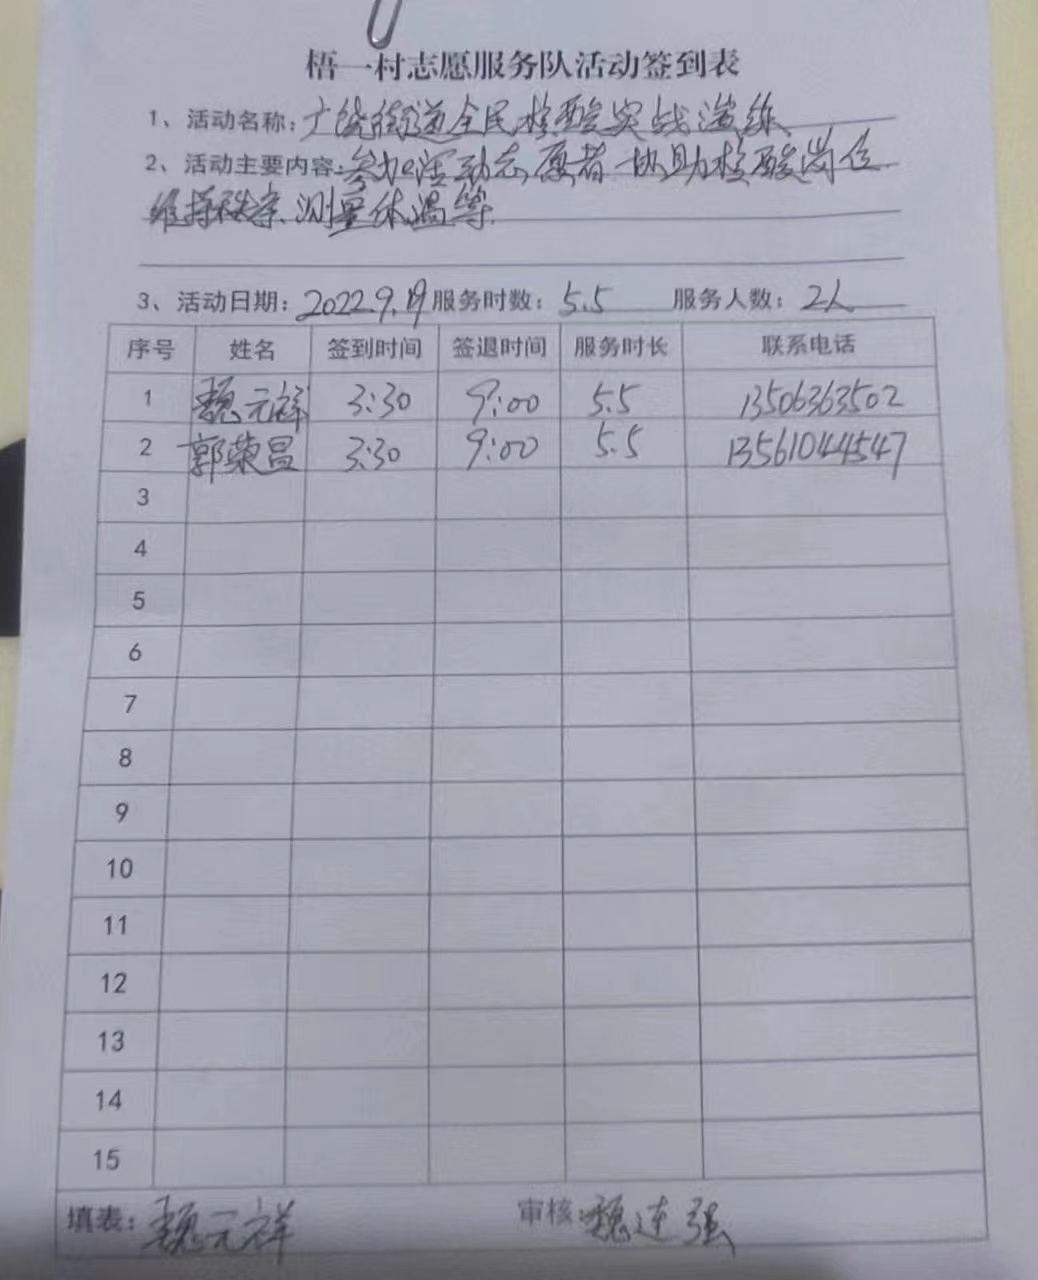 梧一村志愿服务队活动签到表
1、活动名称:广饶街道全民核酸实战演练
2、活动主要内容:参加活动志愿者协助核酸岗位
维持秩序、测量体温等
3、活动日期:2022.9.19 服务时数:5.5 服务人数:2人
序号 姓名 签到时间 签退时间 服务时长 联系电话
1 魏元祥 3:30 9:00 5.5 13506363502
2 郭荣昌 3:30 9:00 5.5 13561044547
3
4
5
6
7
8
9
10
11
12
13
14
15
填表:魏元祥 审核:魏连强